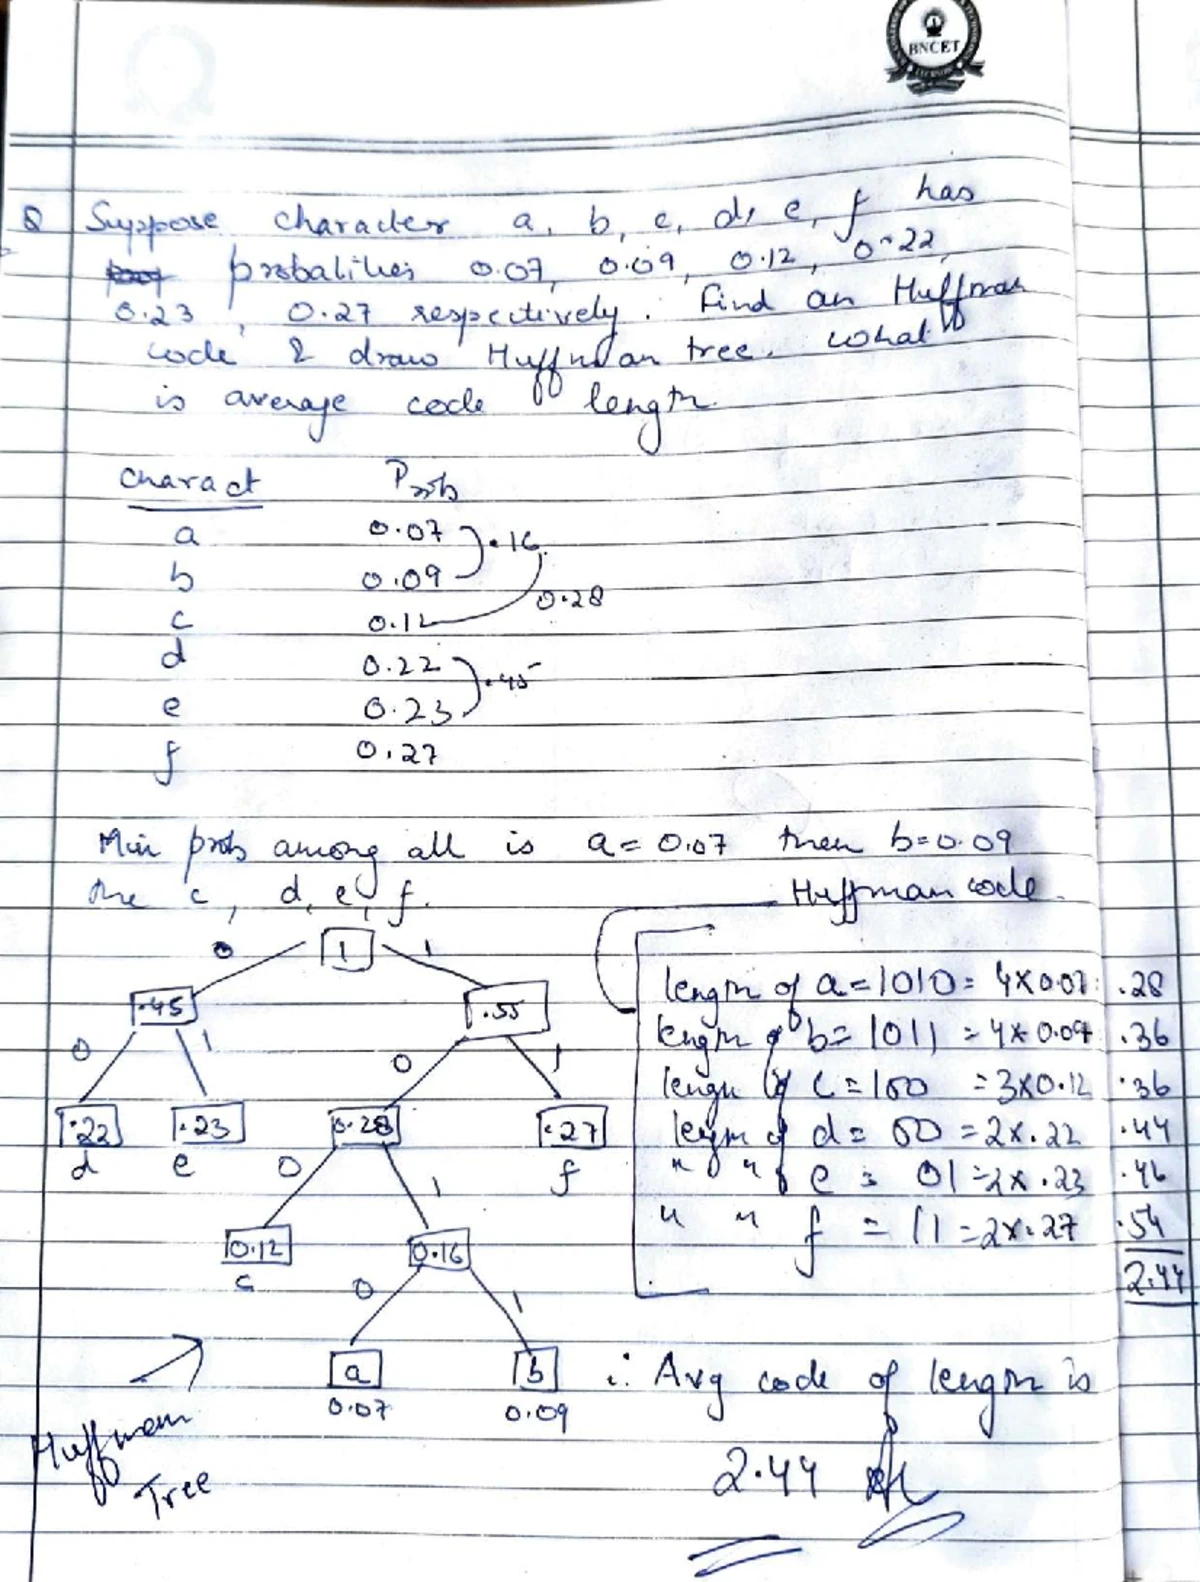 BNCET
Q Suppose character a, b, c, d, e, f has
probalities 0.07, 0.09, 0.12, 0.22,
0.23, 0.27 respectively. Find an Huffman
code & draw Huffman tree. what
is average code length.
Charact Prob
a 0.07
.16
b 0.09
0.28
c 0.12
d 0.22
.45
e 0.23
f 0.27
Min prob among all is a = 0.07 then b = 0.09
the c, d, e, f.
Huffman code.
0 1 1
length of a = 1010 = 4x0.07 .28
.45 .55
length of b = 1011 = 4x0.09 .36
0 1 0 1
length of c = 100 = 3x0.12 .36
.22 .23 0.28 .27
length of d = 00 = 2x.22 .44
d e 0 1 f
" " of e = 01 = 2x.23 .46
" " f = 11 = 2x.27 .54
0.12 0.16
c 0 1
2.44
a b
∴ Avg code of length is
0.07 0.09
Huffman
Tree
2.44